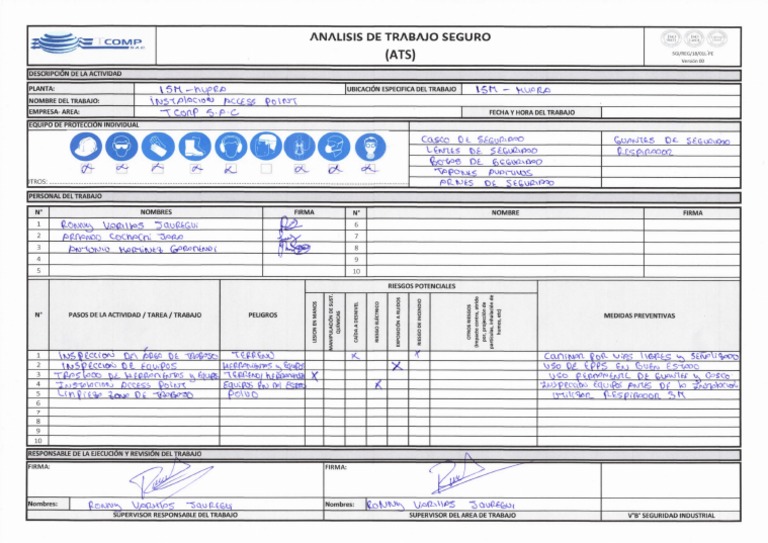 TCOMP S.A.C
ANALISIS DE TRABAJO SEGURO
(ATS)
Versión 00
DESCRIPCIÓN DE LA ACTIVIDAD
PLANTA: ISM - HUPRA UBICACIÓN ESPECIFICA DEL TRABAJO ISM - HUPRA
NOMBRE DEL TRABAJO: INSTALACION ACCESS POINT
EMPRESA- AREA: TCOMP S.A.C FECHA Y HORA DEL TRABAJO
EQUIPO DE PROTECCIÓN INDIVIDUAL
CASCO DE SEGURIDAD GUANTES DE SEGURIDAD
LENTES DE SEGURIDAD RESPIRADOR
BOTAS DE SEGURIDAD
TAPONES AUDITIVOS
ARNES DE SEGURIDAD
ITROS:
PERSONAL DEL TRABAJO
N° NOMBRES FIRMA N° NOMBRE FIRMA
1 RONNY VARILLAS JAUREGUI 6
2 ARMANDO COCHACHI JARO 7
3 ANTONIO MARTINEZ 8
4 9
5 10
N° PASOS DE LA ACTIVIDAD / TAREA / TRABAJO PELIGROS RIESGOS POTENCIALES MEDIDAS PREVENTIVAS
LESION EN MANOS
MANIPULACIÓN DE SUST. QUÍMICAS
CAÍDA A DESNIVEL
RIESGO ELÉCTRICO
EXPOSICIÓN A RUIDOS
RIESGO DE INCENDIO
OTROS RIESGOS
(impacto contra, caída por, proyección de partículas, inhalación de humos, etc)
1 INSPECCION DEL ÁREA DE TRABAJO TERRENO x x CAMINAR POR VIAS LIBRES y SEÑALIZADO
2 INSPECCION DE EQUIPOS HERRAMIENTAS y EQUIPO x USO DE EPPS EN BUEN ESTADO
3 TRASLADO DE HERRAMIENTAS y EQUIPO TERRENO/ HERRAMIENTA x USO PERMANENTE DE GUANTES y CASCO
4 INSTALACION ACCESS POINT EQUIPOS EN MAL ESTADO x INSPECCION EQUIPOS ANTES DE LA INSTALACION
5 LIMPIEZA ZONA DE TRABAJO POLVO UTILIZAR RESPIRADOR 3M
6
7
8
9
10
RESPONSABLE DE LA EJECUCIÓN Y REVISIÓN DEL TRABAJO
FIRMA: FIRMA:
Nombres: RONNY VARILLAS JAUREGUI Nombres: RONNY VARILLAS JAUREGUI
SUPERVISOR RESPONSABLE DEL TRABAJO SUPERVISOR DEL AREA DE TRABAJO V°B° SEGURIDAD INDUSTRIAL